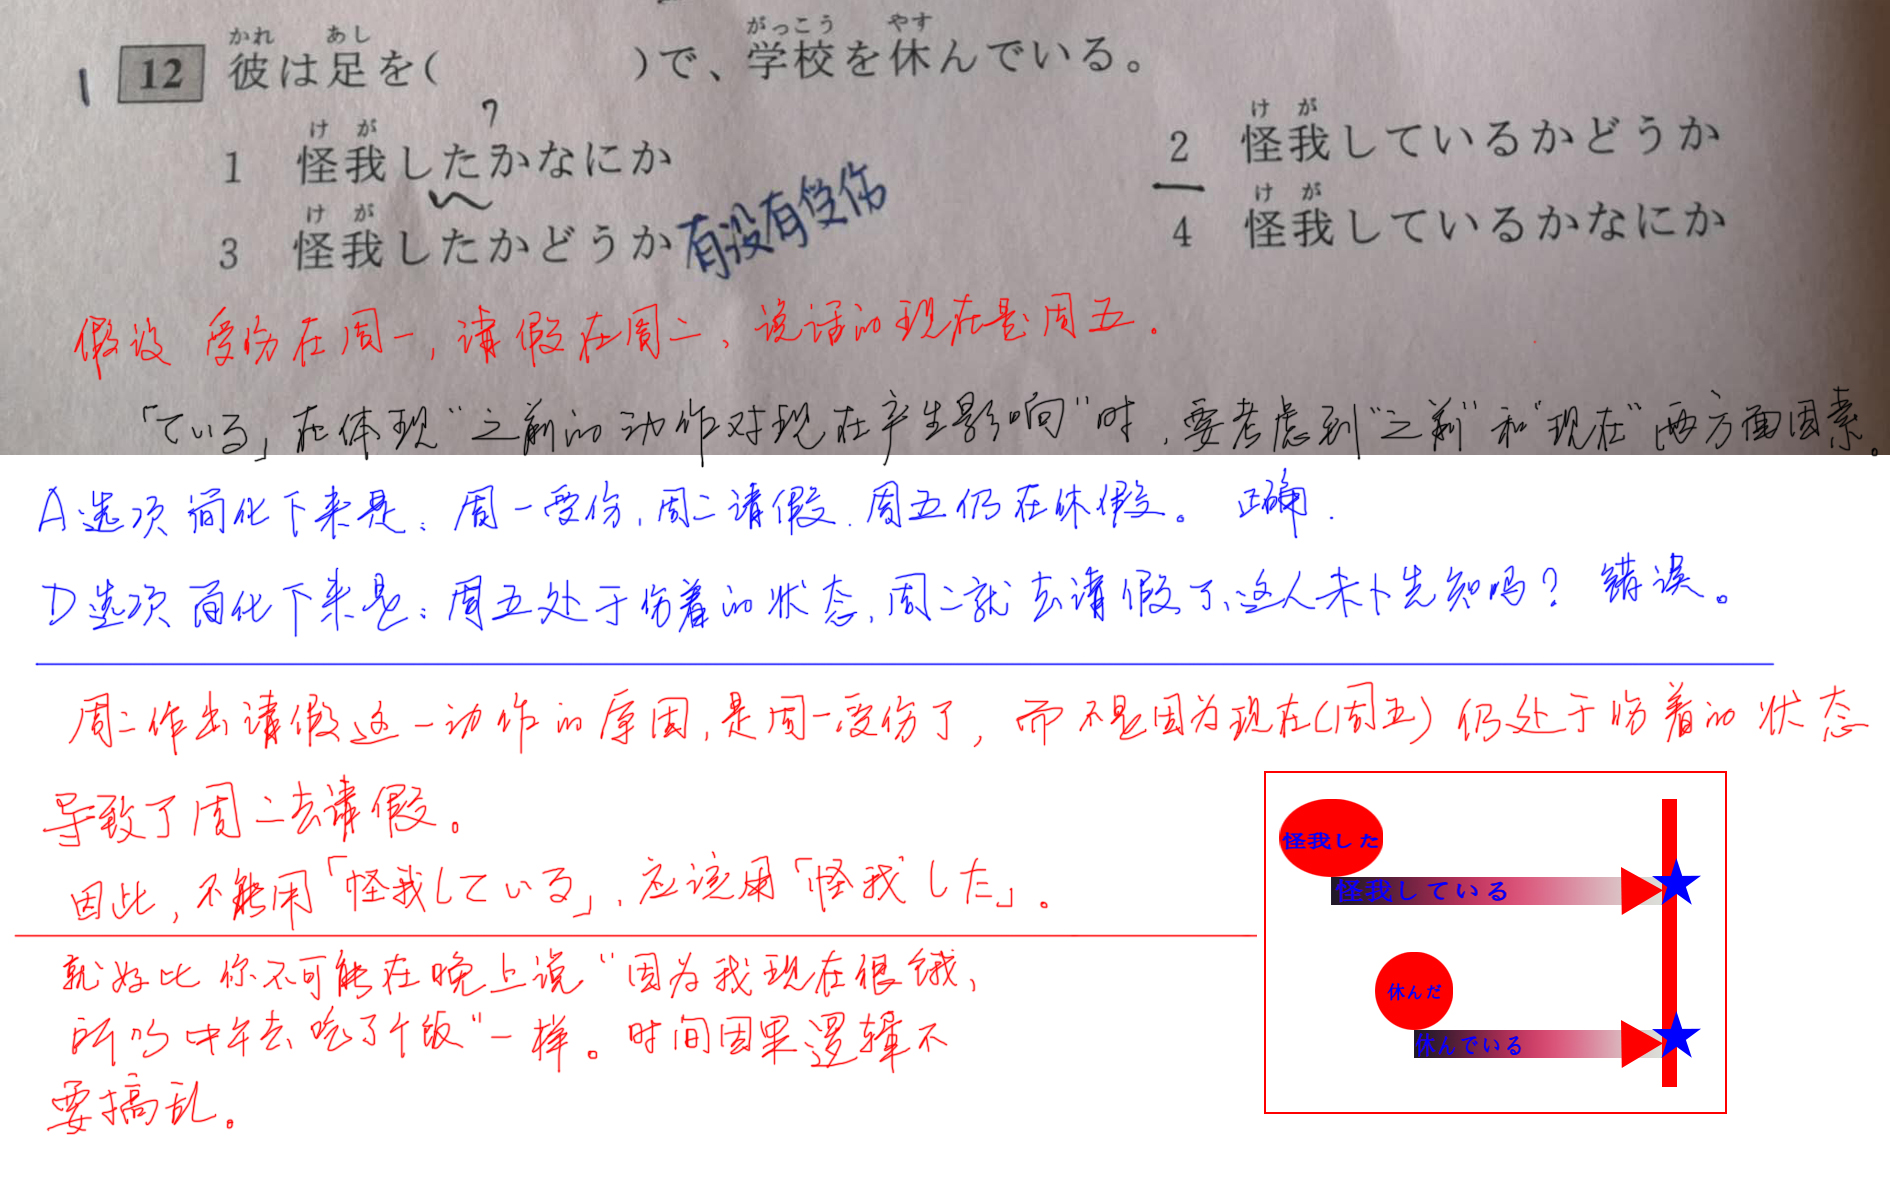 かれ あし がっこう やす
1 12 彼は足を( )で、学校を休んでいる。
け が
1 怪我したかなにか
け が
2 怪我しているかどうか
け が
3 怪我したかどうか 有没有受伤
け が
4 怪我しているかなにか
假设 受伤在周一,请假在周二,说话的现在是周五。
「ている」在体现“之前的动作对现在产生影响”时,要考虑到“之前”和“现在”两方面因素。
A选项简化下来是:周一受伤,周二请假,周五仍在休假。 正确.
D选项简化下来是:周五处于伤着的状态,周二就去请假了,这人未卜先知吗? 错误。
周二作出请假这一动作的原因,是周一受伤了,而不是因为现在(周五)仍处于伤着的状态
导致了周二去请假。
因此,不能用「怪我している」,应该用「怪我した」。
就好比你不可能在晚上说“因为我现在很饿,
所以中午去吃了个饭”一样。时间因果逻辑不
要搞乱。
怪我した
怪我している
休んだ
休んでいる